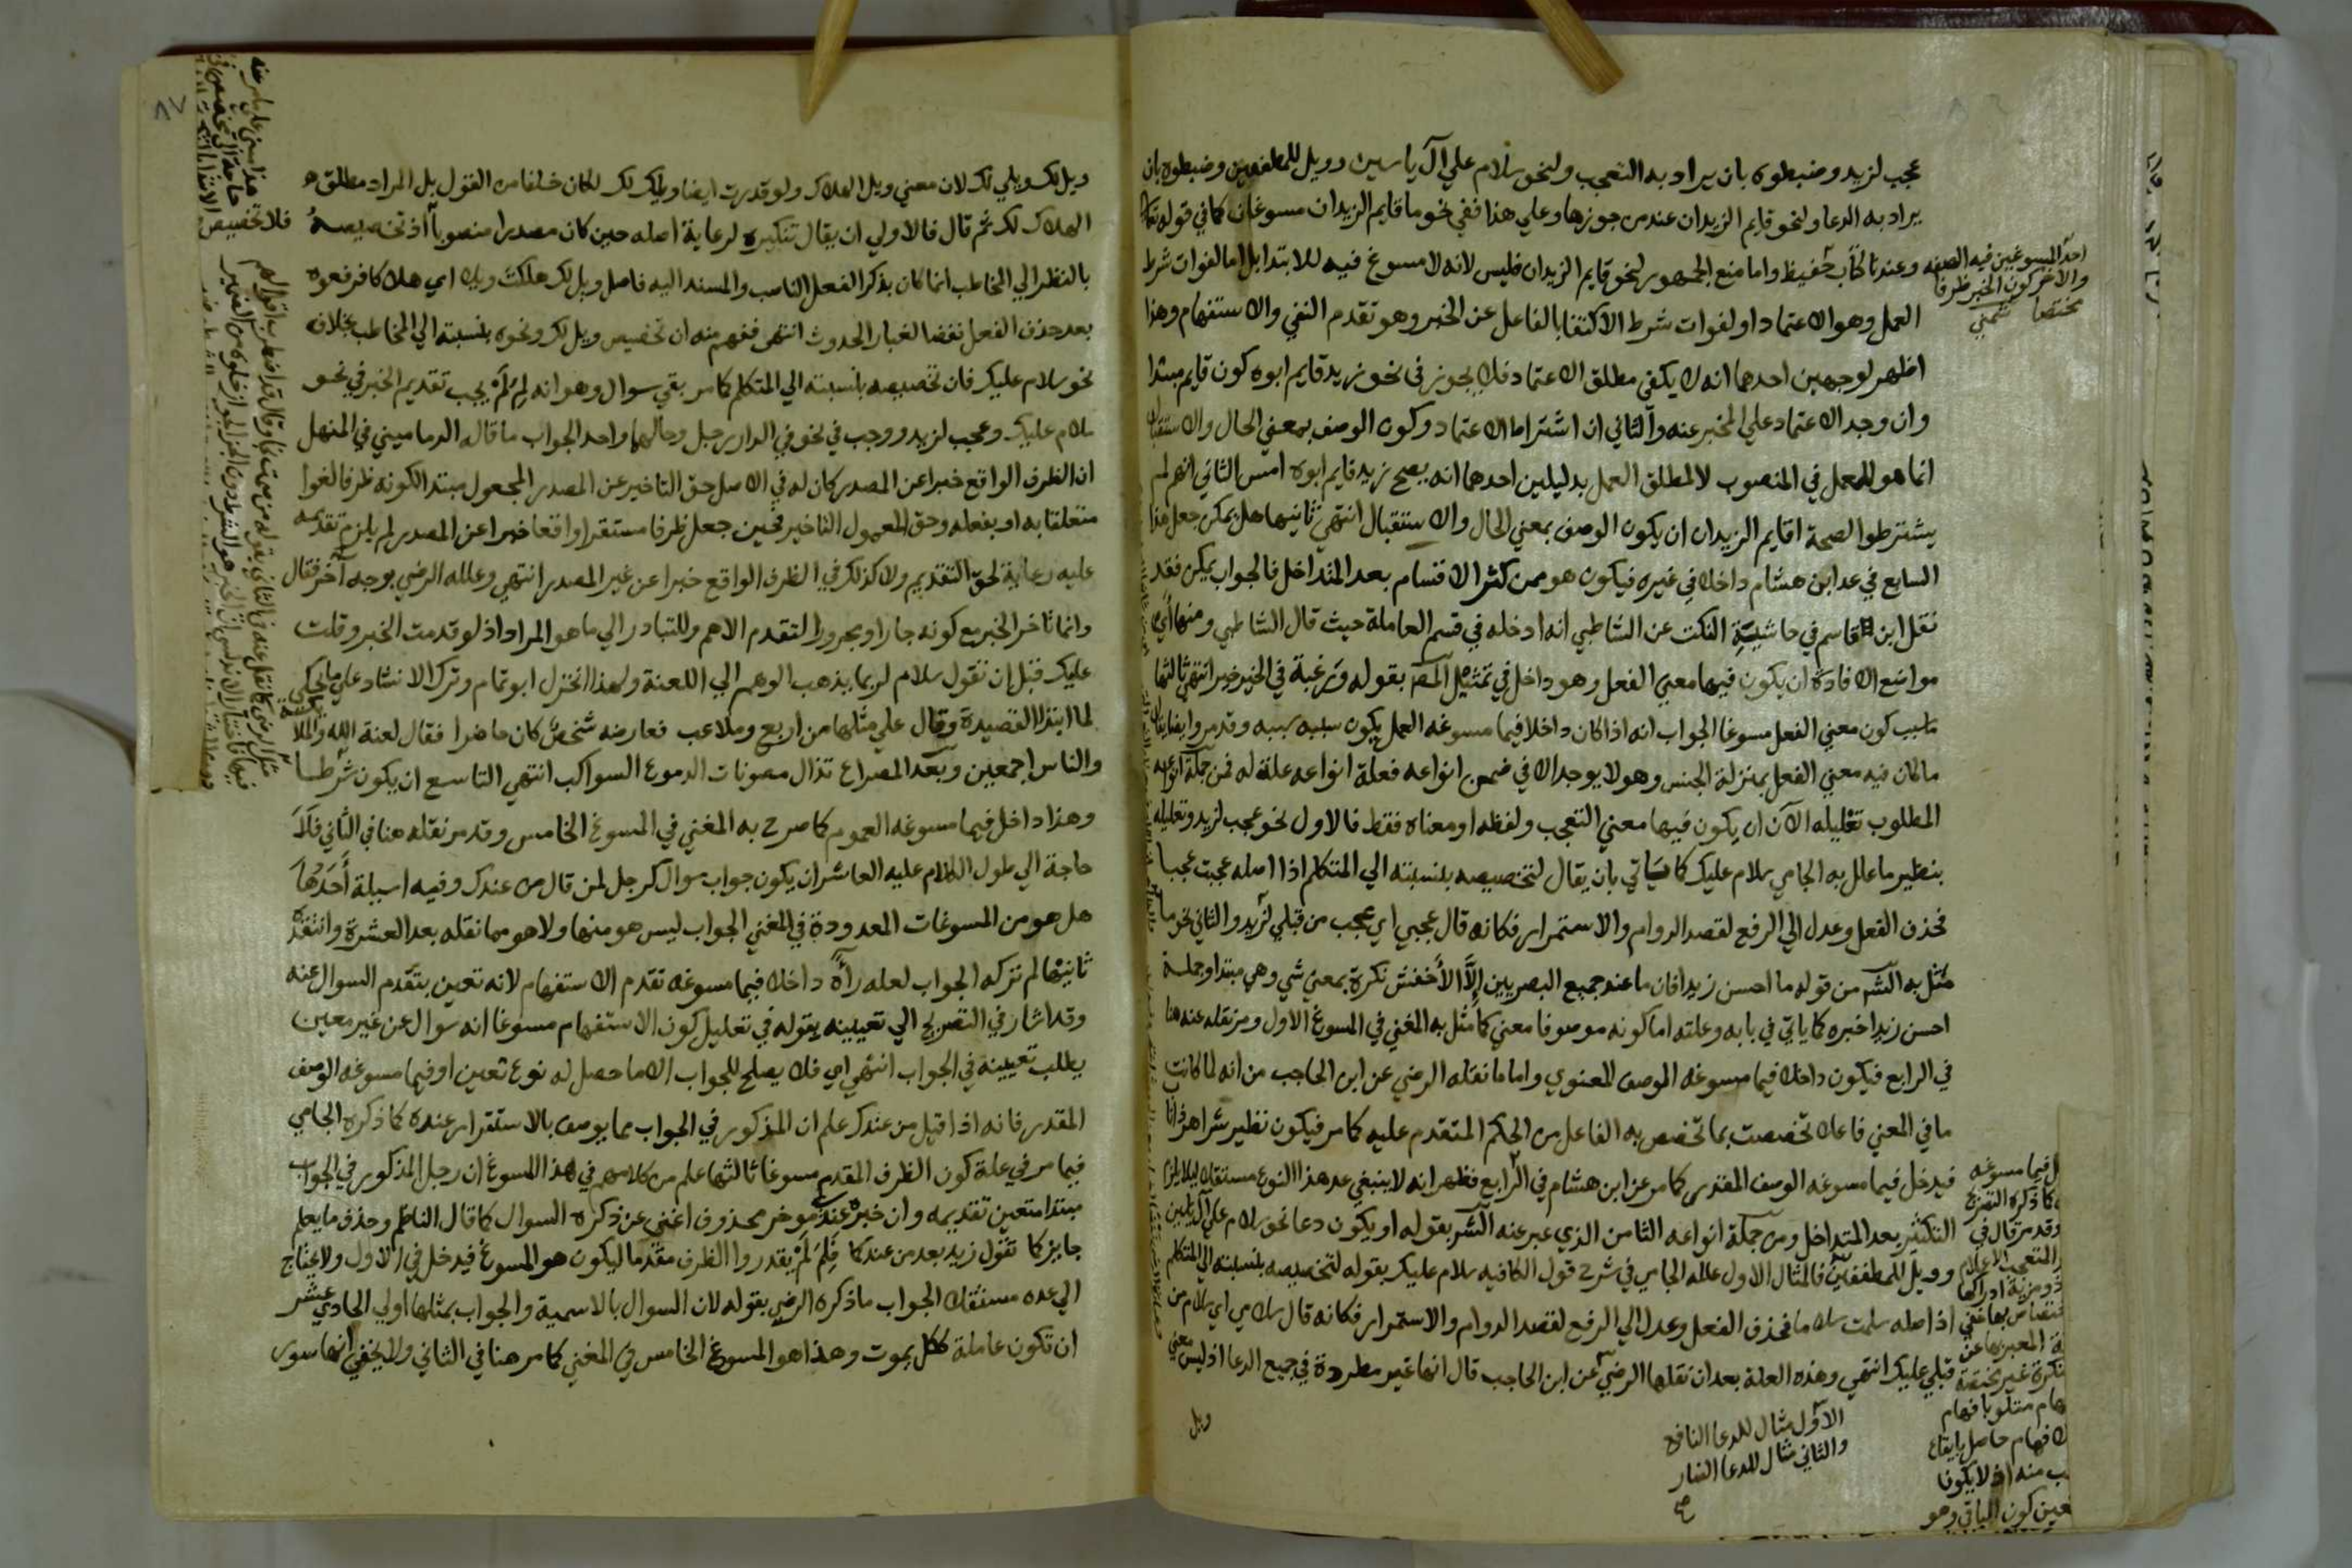 عجب لزيد وضبطوه بان يراد به التعجب ولنحو سلام علي آل ياسين وويل للمطففين وضبطوه بان
يراد به الدعا ولنحو قايم الزيدان عند من جوزها وعلي هذا ففي نحو ما قايم الزيدان مسوغان كما في قوله تعالى
وعندنا كتاب حفيظ واما منع الجمهور لنحو قايم الزيدان فليس لانه لا مسوغ فيه للابتدا بل اما لفوات شرط
العمل وهو الاعتماد او لفوات شرط الاكتفا بالفاعل عن الخبر وهو تقدم النفي والاستفهام وهذا
اظهر لوجهين احدهما انه لا يكفي مطلق الاعتماد فلا يجوز في نحو زيد قايم ابوه كون قايم مبتدا
وان وجد الاعتماد علي المخبر عنه والثاني ان اشتراط الاعتماد وكون الوصف بمعني الحال والاستقبال
انما هو للعمل في المنصوب لا لمطلق العمل بدليلين احدهما انه يصح زيد قايم ابوه امس الثاني انهم لم
يشترطوا لصحة اقايم الزيدان ان يكون الوصف بمعني الحال والاستقبال انتهي ثانيها هل يمكن جعل هذا
السابع في عد ابن هشام داخلا في غيره فيكون هو ممن كثر الاقسام بعد المتداخل فالجواب يمكن فقد
نقل ابن قاسم في حاشيته النكت عن الشاطبي انه ادخله في قسم العاملة حيث قال الشاطبي ومنها اي
مواضع الافادة ان يكون فيها معني الفعل وهو داخل في تمثيل المص بقوله ورغبة في الخير خير انتهي ثالثها
ما سبب كون معني الفعل مسوغا الجواب انه اذا كان داخلا فيما مسوغه العمل يكون سببه سببه وقد مر وايضا
ما كان فيه معني الفعل بمنزلة الجنس وهو لا يوجد الا في ضمن انواعه فعلة انواعه علة له فمن جملة انواعه
المطلوب تعليله الآن ان يكون فيها معني التعجب ولفظه او معناه فقط فالاول نحو عجب لزيد وتعليله
بنظير ما علل به الجامي سلام عليك كما سياتي بان يقال لتخصيصه بنسبته الي المتكلم اذا اصله عجبت عجبا
فحذف الفعل وعدل الي الرفع لقصد الدوام والاستمرار فكانه قال عجبي اي عجب من قبلي لزيد والثاني نحو ما
مثل به الش من قوله ما احسن زيدا فان ما عند جميع البصريين إلا الأخفش نكرة بمعني شي وهي مبتدا وجملة
احسن زيدا خبره كما ياتي في بابه وعلته اما كونه موصوفا معني كما مثل به المغني في المسوغ الاول ومر نقله عنه هنا
في الرابع فيكون داخلا فيما مسوغه الوصف المعنوي واما ما نقله الرضي عن ابن الحاجب من انه لما كانت
ما في المعني فاعلا تخصصت بما تخصص به الفاعل من الحكم المتقدم عليه كما مر فيكون نظير شر اهر ذا ناب
فيدخل فيما مسوغه الوصف المقدر كما مر عن ابن هشام في الرابع فظهر انه لا ينبغي عد هذا النوع مستقلا ليلا يلزم
التكثير بعد المتداخل ومن جملة انواعه الثامن الذي عبر عنه الش بقوله او يكون دعا نحو سلام علي
وويل للمطففين فالمثال الاول علله الجامي في شرح قول الكافيه سلام عليك بقوله لتخصيصه بنسبته الي المتكلم
اذ اصله سلمت سلاما فحذف الفعل وعدل الي الرفع لقصد الدوام والاستمرار فكانه قال سلامي اي سلام من
قبلي عليك انتهي وهذه العلة بعد ان نقلها الرضي عن ابن الحاجب قال انها غير مطردة في جميع الدعا اذ ليس معني
ويل
احد المسوغين فيه الصفه
والآخر كون الخبر ظرفا
مختصا شمني
فيما مسوغه
كما ذكره
وقد مر قال في
الاول مثال للدعا النافع
والثاني مثال للدعا الضار
فهام متلو بافهام
الافهام حاصل بايقاع
منه اذ لا يكون
كون الباقي وهو
٨٧
ويل لك ويلي لك لان معني ويل الهلاك ولو قدرت ايضا ويلك لك لكان خلفا من القول بل المراد مطلق
الهلاك لك ثم قال فالاولي ان يقال تنكيره لرعاية اصله حين كان مصدرا منصوبا اذ تخصيصه
بالنظر الي المخاطب انما كان بذكر الفعل الناصب والمسند اليه فاصل ويل لك هلكت ويلا اي هلاكا فرفعوه
بعد حذف الفعل نفضا لغبار الحدوث انتهي ففهم منه ان تخصيص ويل لك ونحوه بنسبته الي المخاطب بخلاف
نحو سلام عليك فان تخصيصه بنسبته الي المتكلم كما مر بقي سوال وهو انه لم لم يجب تقديم الخبر في نحو
سلام عليك وعجب لزيد ووجب في نحو في الدار رجل وحالهما واحد الجواب ما قاله الدماميني في المنهل
ان الظرف الواقع خبرا عن المصدر كان له في الاصل حق التاخير عن المصدر المجعول مبتدا لكونه ظرفا لغوا
متعلقا به او بفعله وحق المعمول التاخير فحين جعل ظرفا مستقرا واقعا خبرا عن المصدر لم يلزم تقديمه
عليه رعاية لحق التقديم ولا كذلك في الظرف الواقع خبرا عن غير المصدر انتهي وعلله الرضي بوجه آخر فقال
وانما تاخر الخبر مع كونه جارا ومجرورا لتقدم الاهم وللتبادر الي ما هو المراد اذ لو قدمت الخبر وقلت
عليك قبل ان تقول سلام لربما يذهب الوهم الي اللعنة ولهذا انخزل ابو تمام وترك الانشاد علي ما يحكي
لما ابتدا القصيدة وقال علي مثلها من اربع وملاعب فعارضه شخص كان حاضرا فقال لعنة الله والملائكة
والناس اجمعين وبعد المصراع تذال مصونات الدموع السواكب انتهي التاسع ان يكون شرطا
وهذا داخل فيما مسوغه العموم كما صرح به المغني في المسوغ الخامس وقد مر نقله هنا في الثاني فلا
حاجة الي طول الكلام عليه العاشر ان يكون جواب سوال كرجل لمن قال من عندك وفيه اسيلة أحدها
هل هو من المسوغات المعدودة في المغني الجواب ليس هو منها ولا هو مما نقله بعد العشرة وانتقده
ثانيها لم تركه الجواب لعله رآه داخلا فيما مسوغه تقدم الاستفهام لانه تعين بتقدم السوال عنه
وقد اشار في التصريح الي تعيينه بقوله في تعليل كون الاستفهام مسوغا انه سوال عن غير معين
يطلب تعيينه في الجواب انتهي اي فلا يصلح للجواب الا ما حصل له نوع تعين او فيما مسوغه الوصف
المقدر فانه اذا قيل من عندك علم ان المذكور في الجواب مما يوصف بالاستقرار عنده كما ذكره الجامي
فيما مر في علة كون الظرف المقدم مسوغا ثالثها علم من كلامهم في هذا المسوغ ان رجل المذكور في الجواب
مبتدا متعين تقديمه وان خبره عندي موخر محذوف اغني عن ذكره السوال كما قال الناظم وحذف ما يعلم
جايز كما تقول زيد بعد من عندكما فلم لم يقدروا الظرف مقدما ليكون هو المسوغ فيدخل في الاول ولا يحتاج
الي عده مستقلا الجواب ما ذكره الرضي بقوله لان السوال بالاسمية والجواب بمثلها اولي الحادي عشر
ان تكون عاملة ككل يموت وهذا هو المسوغ الخامس في المغني كما مر هنا في الثاني ولا يخفي انها سور
هذا مبني علي ما مر عنه
فلا تخصيص